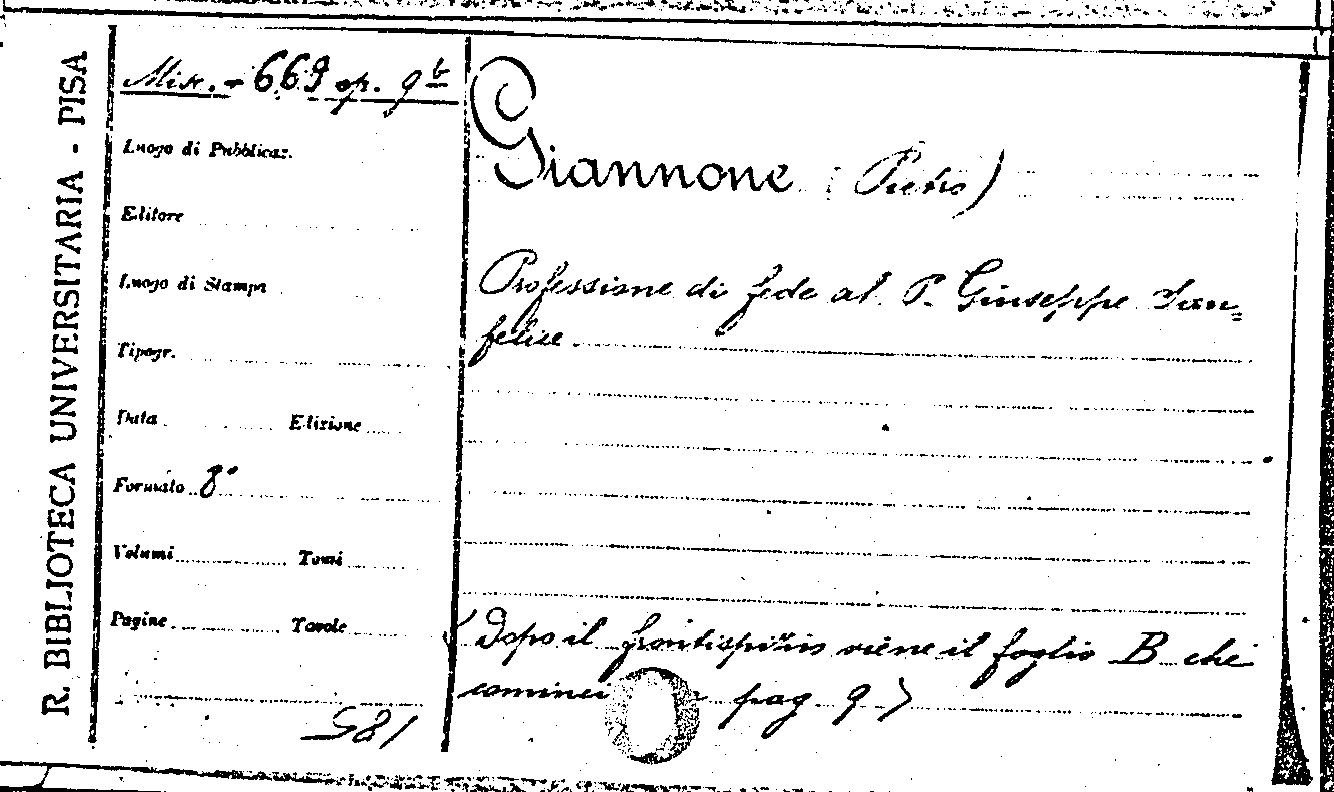 R. BIBLIOTECA UNIVERSITARIA - PISA
Misc. - 669 op. 9 b
Luogo di Pubblicaz.
Editore
Luogo di Stampa
Tipogr.
Data Edizione
Formato 8°
Volumi Tomi
Pagine Tavole
581
Giannone (Pietro)
Professione di fede al P. Giuseppe San=
felice
(Dopo il frontispizio viene il foglio B che
cominci pag 9)